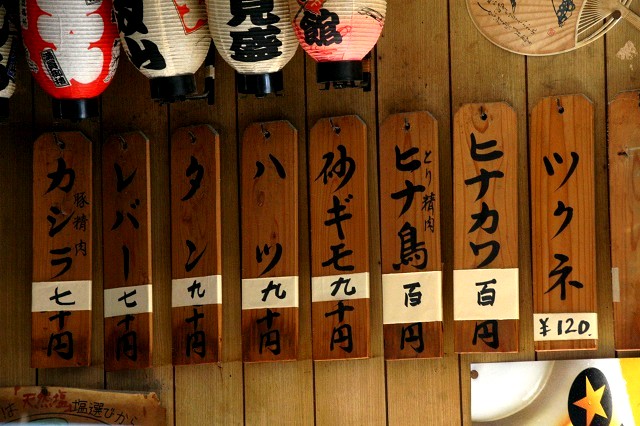 見盛
館
カシラ
豚精肉
七十円
レバー
七十円
タン
九十円
ハツ
九十円
砂ギモ
九十円
ヒナ鳥
とり精肉
百円
ヒナカワ
百円
ツクネ
¥120
天然塩
塩選びから